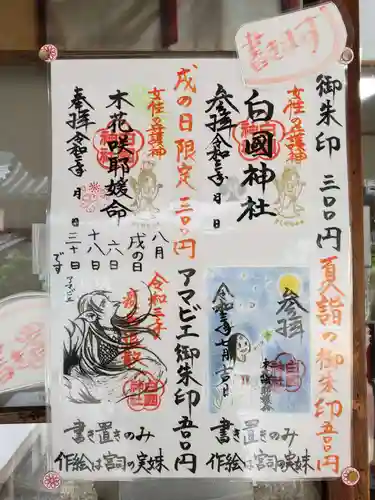 書きます
御朱印 三〇〇円
女性の守護神
白國神社
奉拝 令和三年 月 日
白國神社
戌の日限定 三〇〇円
女性の守護神
木花咲耶媛命
奉拝 令和三年 月 日
八月
戌の日
六日
十八日
三十日
です
夏詣の御朱印 五〇〇円
奉拝
令和三年七月
書き置きのみ
作絵は宮司の実妹
アマビエ御朱印 五〇〇円
令和三年
疫病退散
白國神社
書き置きのみ
作絵は宮司の実妹